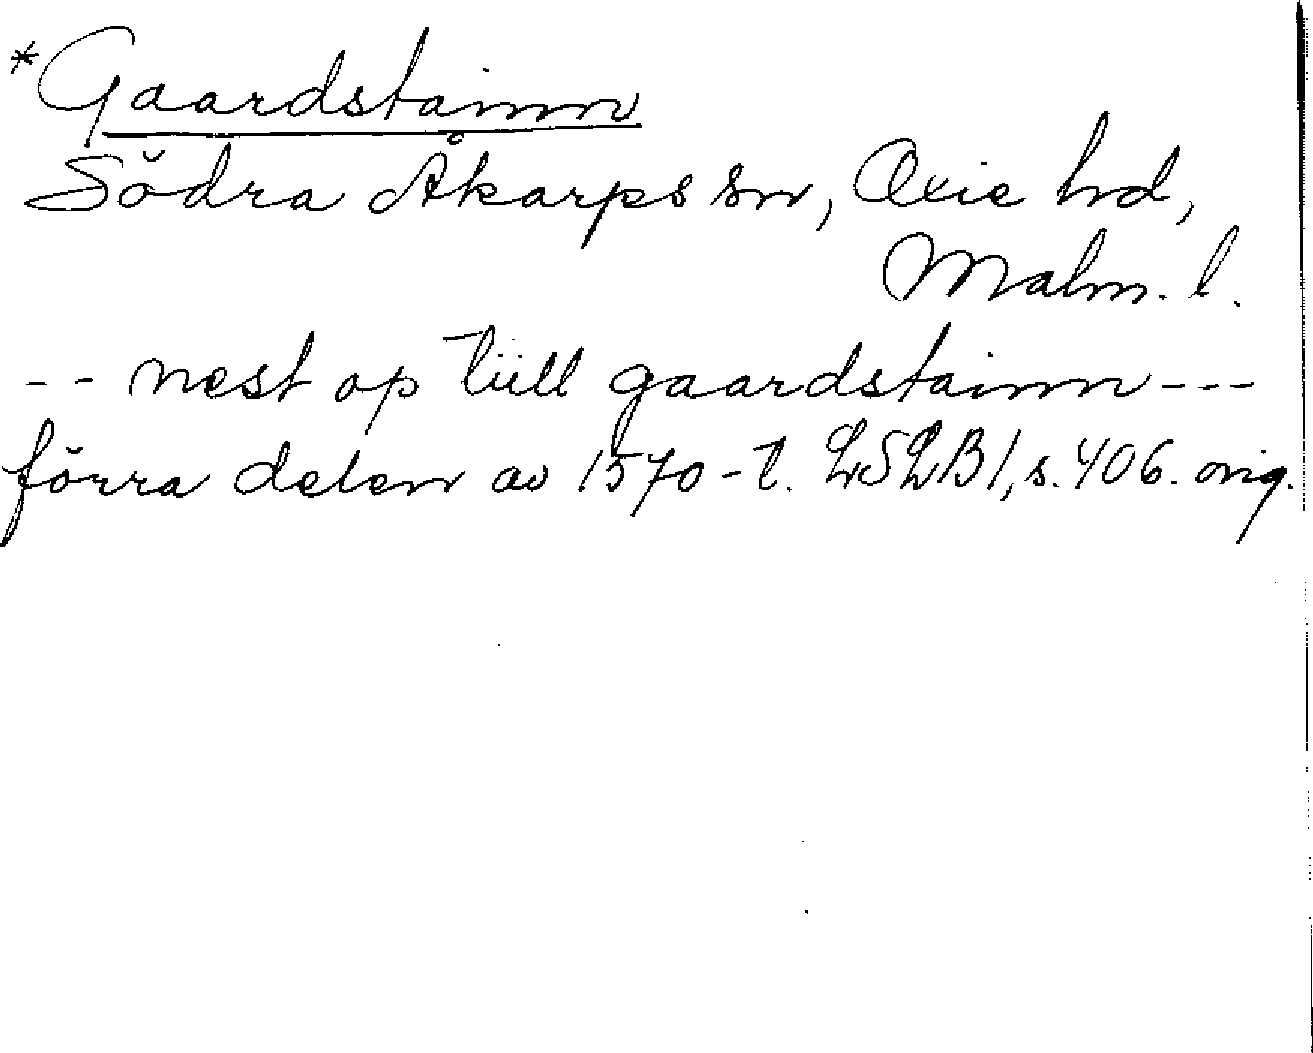 *Gaardstainn
Södra Åkarps sn, Oxie hd,
Malm. l.
-- nest op tiill gaardstainn ---
förra delen av 1570-t. LSLB1, s. 406. orig.